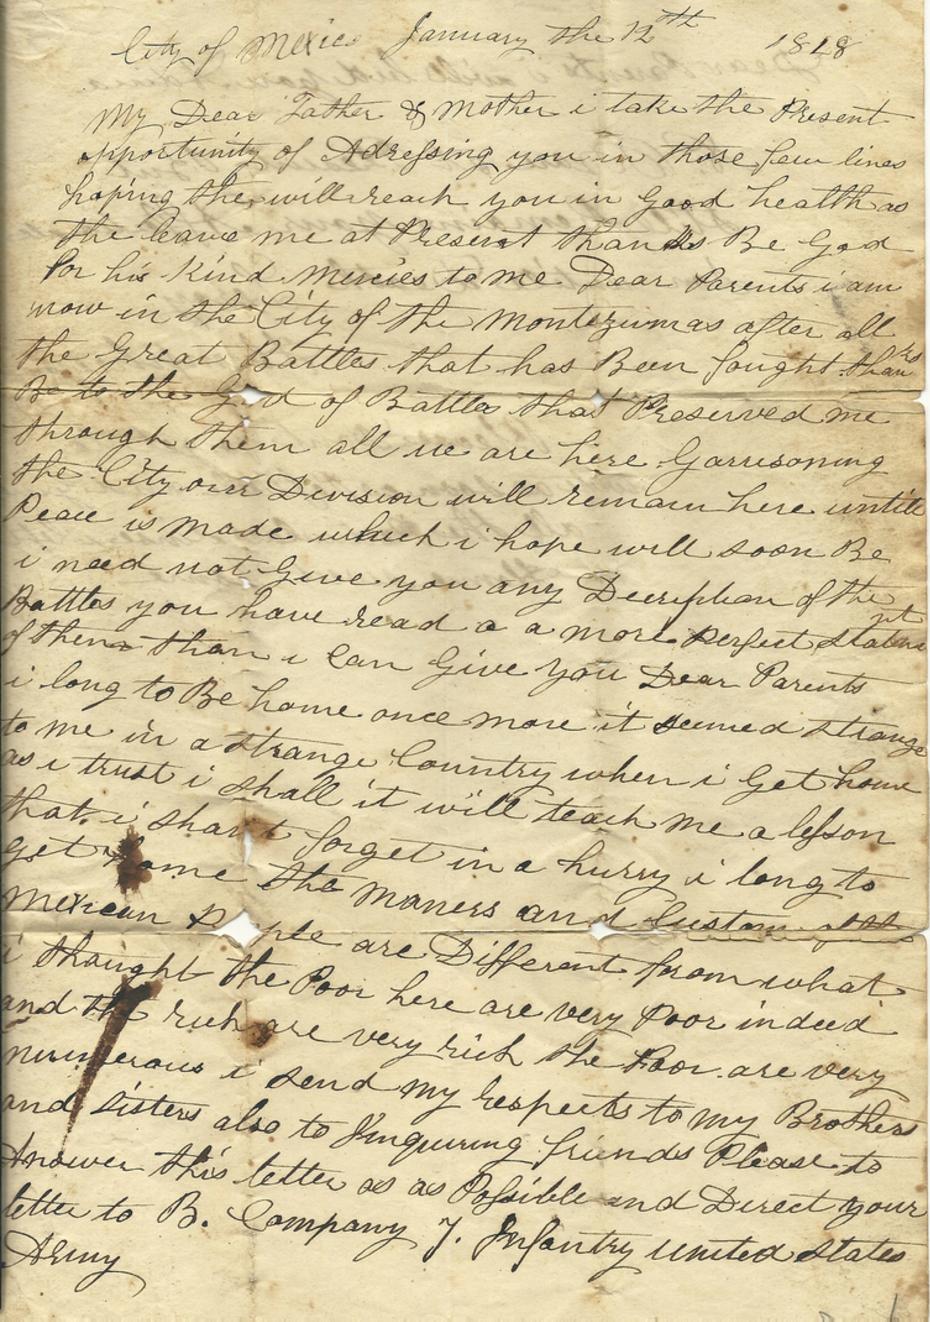 City of Mexico January the 12th 1848
My Dear Father & Mother i take the Present
opportunity of Adressing you in those few lines
hoping the will reach you in Good health as
the leave me at Present thanks Be God
for his Kind mercies to me Dear Parents i am
now in the City of the Montezumas after all
the Great Battles that has Been fought thanks
Be to the God of Battles that Preserved me
through them all we are here Garrisoning
the City our Division will remain here untill
Peace is made which i hope will soon Be
i need not Give you any Decription of the
Battles you have read a a more Perfect Statement
of them than i Can Give you Dear Parents
i long to Be home once more it seemed strange
to me in a strange Country when i Get home
as i trust i shall it will teach me a lesson
that i shant forget in a hurry i long to
get home the maners and Custom of the
Mexican People are Different from what
i thought the Poor here are very Poor indeed
and the rich are very rich the Poor are very
numerous i send my respects to my Brothers
and sisters also to Inquiring friends Please to
Answer this letter as as Possible and Direct your
letter to B. Company 7. Infantry United States
Army